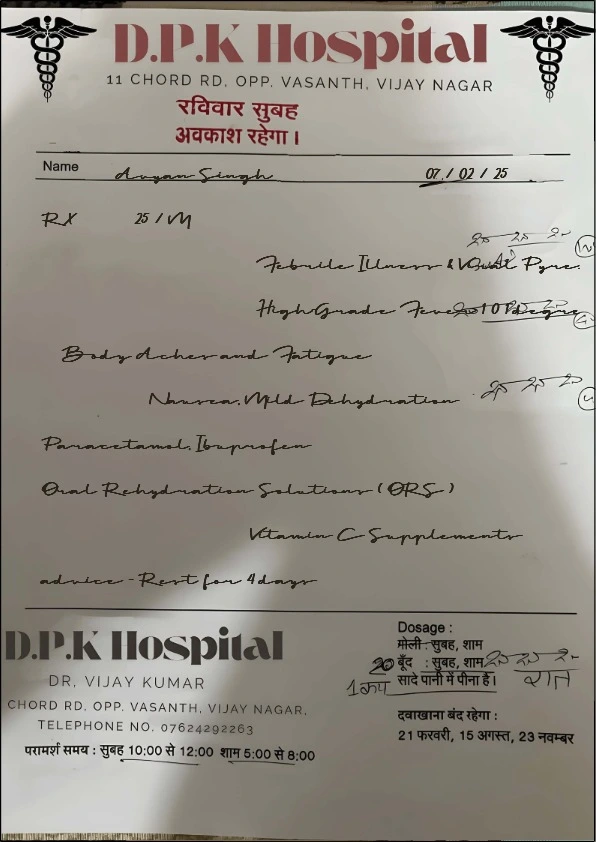 D.P.K Hospital
11 CHORD RD, OPP. VASANTH, VIJAY NAGAR
रविवार सुबह
अवकाश रहेगा।
Name Aryan Singh 07 / 02 / 25
RX 25 / M
Febrile Illness & Viral Pyre.
High Grade Fever
Body Aches and Fatigue
Nausea, Mild Dehydration
Paracetamol, Ibuprofen
Oral Rehydration Solutions (ORS)
Vitamin C Supplements
advice - Rest for 4 days
D.P.K Hospital
DR, VIJAY KUMAR
CHORD RD, OPP. VASANTH, VIJAY NAGAR,
TELEPHONE NO. 07624292263
परामर्श समय : सुबह 10:00 से 12:00 शाम 5:00 से 8:00
Dosage :
गोली : सुबह, शाम
20 बूँद : सुबह, शाम रात
1 कप सादे पानी में पीना है।
दवाखाना बंद रहेगा :
21 फरवरी, 15 अगस्त, 23 नवम्बर